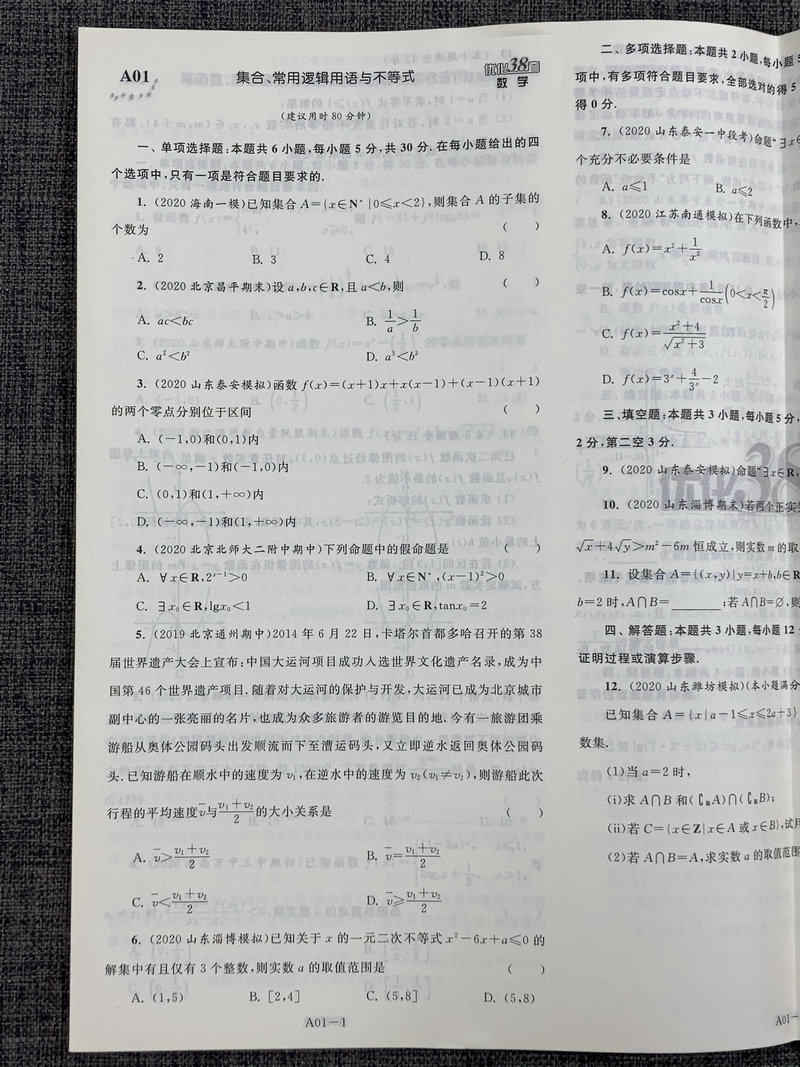 A01
集合、常用逻辑用语与不等式
优化38套
数学
(建议用时80分钟)
一、单项选择题:本题共6小题,每小题5分,共30分.在每小题给出的四
个选项中,只有一项是符合题目要求的.
1. (2020海南一模)已知集合A={x∈N*|0≤x<2},则集合A的子集的
个数为 ( )
A. 2 B. 3 C. 4 D. 8
2. (2020北京昌平期末)设a,b,c∈R,且a<b,则 ( )
A. ac<bc B. 1/a>1/b
C. a²<b² D. a³<b³
3. (2020山东泰安模拟)函数f(x)=(x+1)x+x(x-1)+(x-1)(x+1)
的两个零点分别位于区间 ( )
A. (-1,0)和(0,1)内
B. (-∞,-1)和(-1,0)内
C. (0,1)和(1,+∞)内
D. (-∞,-1)和(1,+∞)内
4. (2020北京北师大二附中期中)下列命题中的假命题是 ( )
A. ∀x∈R,2ˣ⁻¹>0 B. ∀x∈N*,(x-1)²>0
C. ∃x₀∈R,lgx₀<1 D. ∃x₀∈R,tanx₀=2
5. (2019北京通州期中)2014年6月22日,卡塔尔首都多哈召开的第38
届世界遗产大会上宣布:中国大运河项目成功入选世界文化遗产名录,成为中
国第46个世界遗产项目.随着对大运河的保护与开发,大运河已成为北京城市
副中心的一张亮丽的名片,也成为众多旅游者的游览目的地.今有一旅游团乘
游船从奥体公园码头出发顺流而下至漕运码头,又立即逆水返回奥体公园码
头.已知游船在顺水中的速度为v₁,在逆水中的速度为v₂(v₁≠v₂),则游船此次
行程的平均速度v̄与(v₁+v₂)/2的大小关系是 ( )
A. v̄>(v₁+v₂)/2 B. v̄=(v₁+v₂)/2
C. v̄<(v₁+v₂)/2 D. v̄≥(v₁+v₂)/2
6. (2020山东淄博模拟)已知关于x的一元二次不等式x²-6x+a≤0的
解集中有且仅有3个整数,则实数a的取值范围是 ( )
A. (1,5) B. [2,4] C. (5,8] D. (5,8)
A01-1
二、多项选择题:本题共2小题,每小题5
项中,有多项符合题目要求,全部选对的得5
得0分.
7. (2020山东泰安一中段考)命题"∃x∈
个充分不必要条件是
A. a≤1 B. a≤2
8. (2020江苏南通模拟)在下列函数中,
A. f(x)=x²+1/x²
B. f(x)=cosx+1/cosx(0<x<π/2)
C. f(x)=(x²+4)/√(x²+3)
D. f(x)=3ˣ+4/3ˣ-2
三、填空题:本题共3小题,每小题5分,
2分,第二空3分.
9. (2020山东泰安模拟)命题"∃x∈R,
10. (2020山东淄博期末)若两个正实
√x+4√y>m²-6m恒成立,则实数m的取
11. 设集合A={(x,y)|y=x+b,b∈R
b=2时,A∩B=______;若A∩B=∅,则
四、解答题:本题共3小题,每小题12
证明过程或演算步骤.
12. (2020山东潍坊模拟)(本小题满分
已知集合A={x|a-1≤x≤2a+3}
数集.
(1)当a=2时,
(i)求A∩B和(∁RA)∩(∁RB);
(ii)若C={x∈Z|x∈A或x∈B},试用
(2)若A∩B=A,求实数a的取值范围
A01-